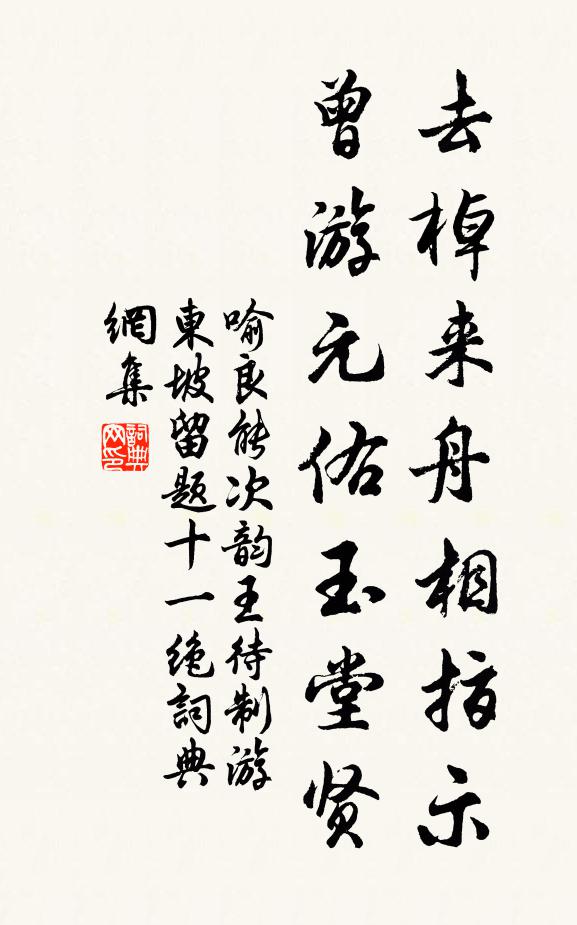 去棹来舟相指示
曾游元佑玉堂贤
喻良能次韵王待制游
東坡留题十一绝詞典
網集
詞典
网印